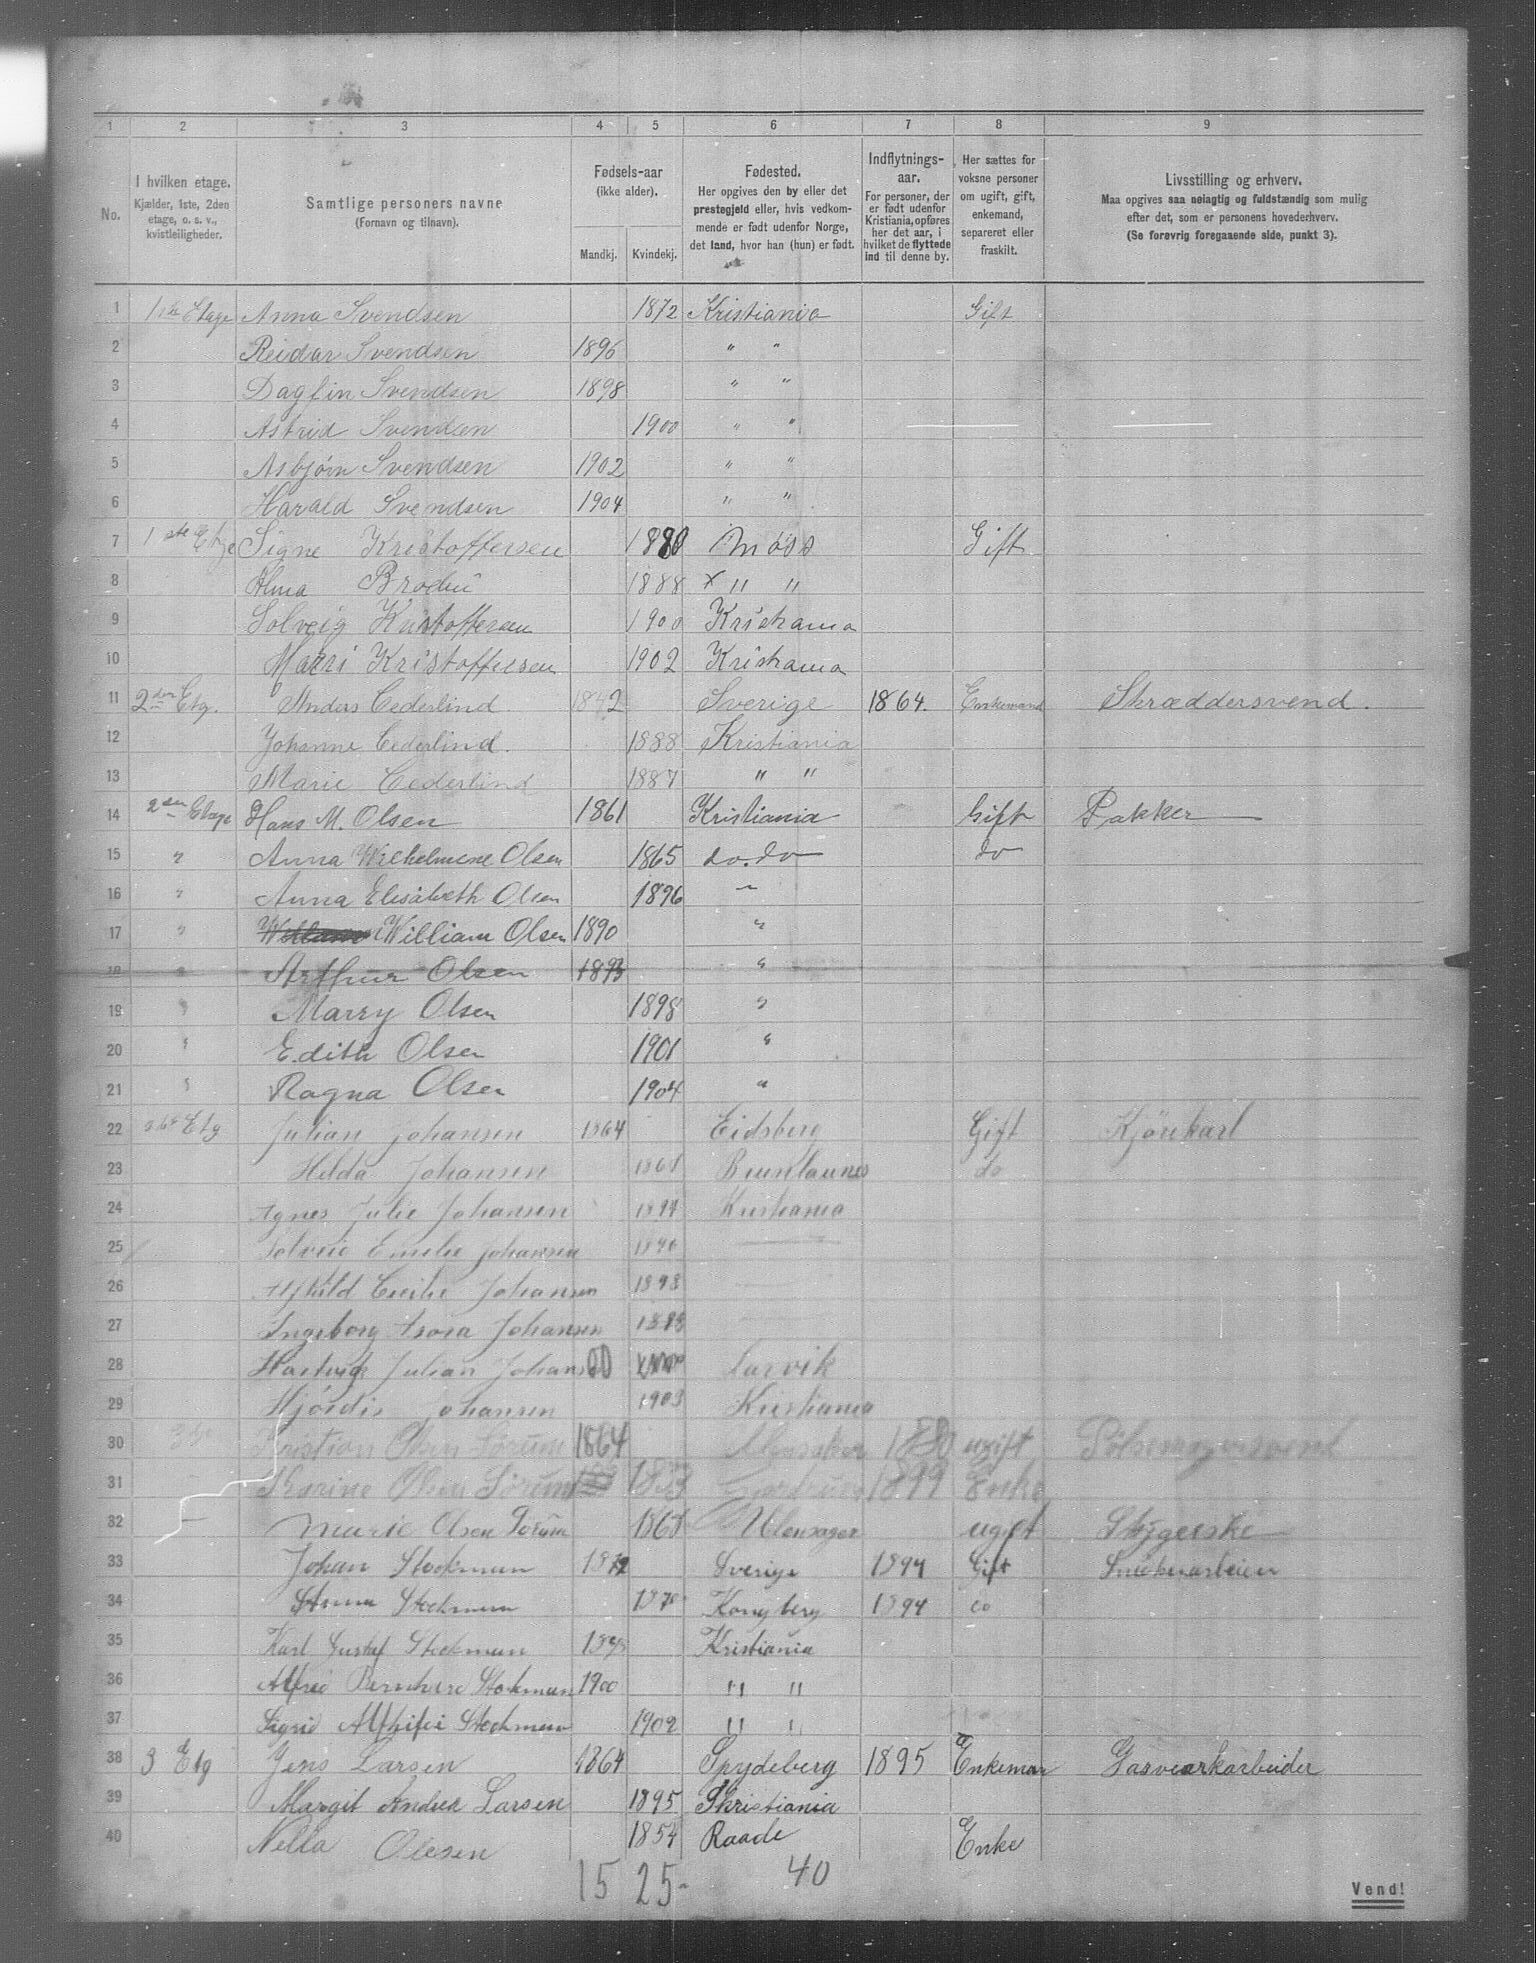 1 2 3 4 5 6 7 8 9
No.
I hvilken etage.
Kjælder, 1ste, 2den
etage, o. s. v.,
kvistleiligheder.
Samtlige personers navne
(Fornavn og tilnavn).
Fødsels-aar
(ikke alder).
Mandkj. Kvindekj.
Fødested.
Her opgives den by eller det
prestegjeld eller, hvis vedkom-
mende er født udenfor Norge,
det land, hvor han (hun) er født.
Indflytnings-
aar.
For personer, der
er født udenfor
Kristiania, opføres
her det aar, i
hvilket de flyttede
ind til denne by.
Her sættes for
voksne personer
om ugift, gift,
enkemand,
separeret eller
fraskilt.
Livsstilling og erhverv.
Maa opgives saa nøiagtig og fuldstændig som mulig
efter det, som er personens hovederhverv.
(Se forøvrig foregaaende side, punkt 3).
1 1ste Etage Anna Svendsen 1872 Kristiania Gift
2 Reidar Svendsen 1896 " "
3 Dagfin Svendsen 1898 " "
4 Astrid Svendsen 1900 " "
5 Asbjørn Svendsen 1902 " "
6 Harald Svendsen 1904 " "
7 1ste Etge Signe Kristoffersen 1880 Moss Gift
8 Alma 1888 x " "
9 Solveig Kristoffersen 1900 Kristiania
10 Marri Kristoffersen 1902 Kristiania
11 2den Etg. Anders Cederlind 1842 Sverige 1864. Enkemand Skræddersvend.
12 Johanne Cederlind. 1888 Kristiania
13 Marie Cederlind 1887 " "
14 2den Etage Hans M. Olsen 1861 Kristiania Gift Pakker
15 " Anna Wilhelmine Olsen 1865 do. do do
16 " Anna Elisabeth Olsen 1896 "
17 " William Olsen 1890 "
18 " Arthur Olsen 1893 "
19 " Marry Olsen 1898 "
20 " Edith Olsen 1901 "
21 " Ragna Olsen 1904 "
22 Etg Julian Johansen 1864 Eidsberg Gift Kjørekarl
23 Hilda Johansen Brunlaunes do
24 Agnes Julie Johansen Kristiania
25 Solveie Emilie Johansen
26 Cecilie Johansen
27 Ingeborg Johansen
28 Hartvig Julian Johansen Larvik
29 Hjördis Johansen 1903 Kristiania
30 Kristian Olsen Sørum 1864 ugift
31 Karine Olsen Sørum 1899 Enke
32 Marie Olsen Sørum Ulensager ugift
33 Johan Stockman Sverige 1894 Gift
34 Anna Stockman Kongsberg 1894 do
35 Karl Gustaf Stockman Kristiania
36 Alfred Bernhard Stockman 1900 " "
37 Sigrid Stockman 1902 " "
38 3 Etg Jens Larsen 1864 Spydeberg 1895 Enkeman Gasverkarbeider
39 Margit Andrea Larsen 1895 Kristiania
40 Nella Olesen 1854 Raade Enke
15 25 - 40
Vend!